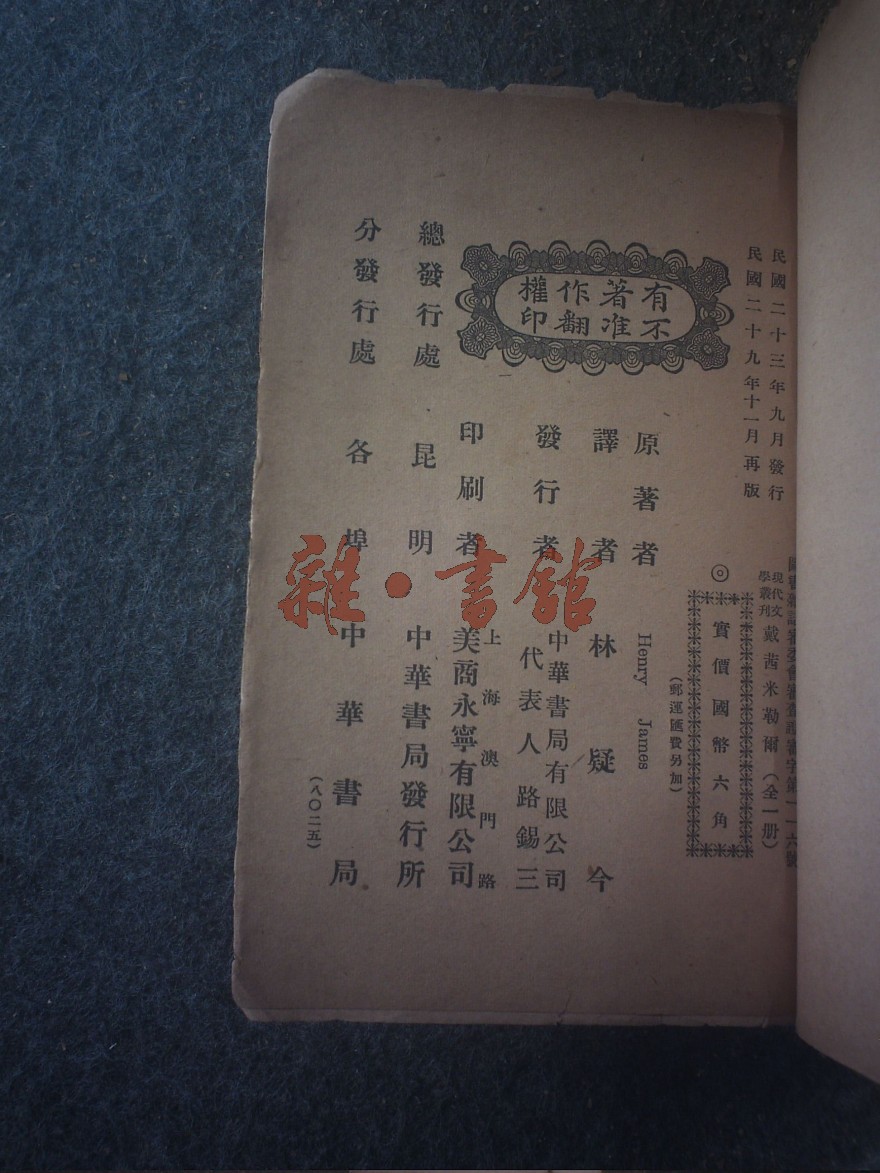 民國二十三年九月發行
民國二十九年十一月再版
有著作權
不准翻印
現代文學叢刊
戴茜米勒爾（全一册）
◎實價國幣六角
（郵運匯費另加）
原著者 Henry James
譯者 林疑今
發行者 中華書局有限公司
代表人路錫三
印刷者 上海澳門路
美商永寧有限公司
總發行處 昆明 中華書局發行所
分發行處 各埠 中華書局
（八〇二五）
雜·書館